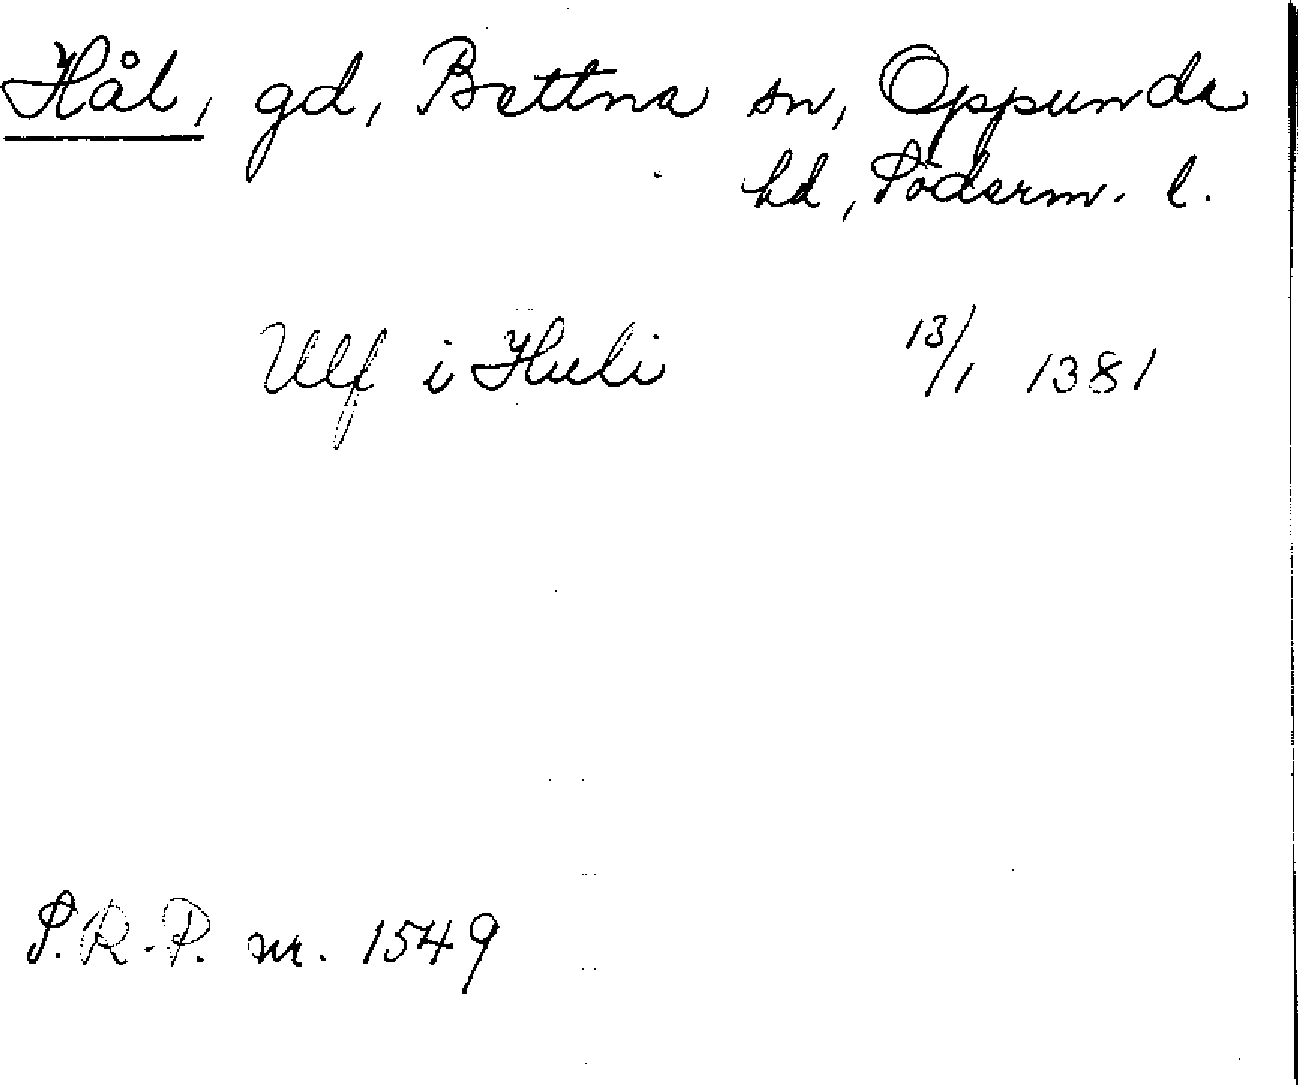 Hål, gd, Bettna sn, Oppunda
hd, Söderm. l.
Ulf i Huli 13/1 1381
S.R.-P. nr. 1549